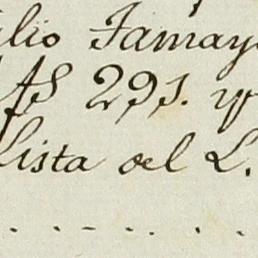 ilio Tamay
fs 291. y
Lista del L.